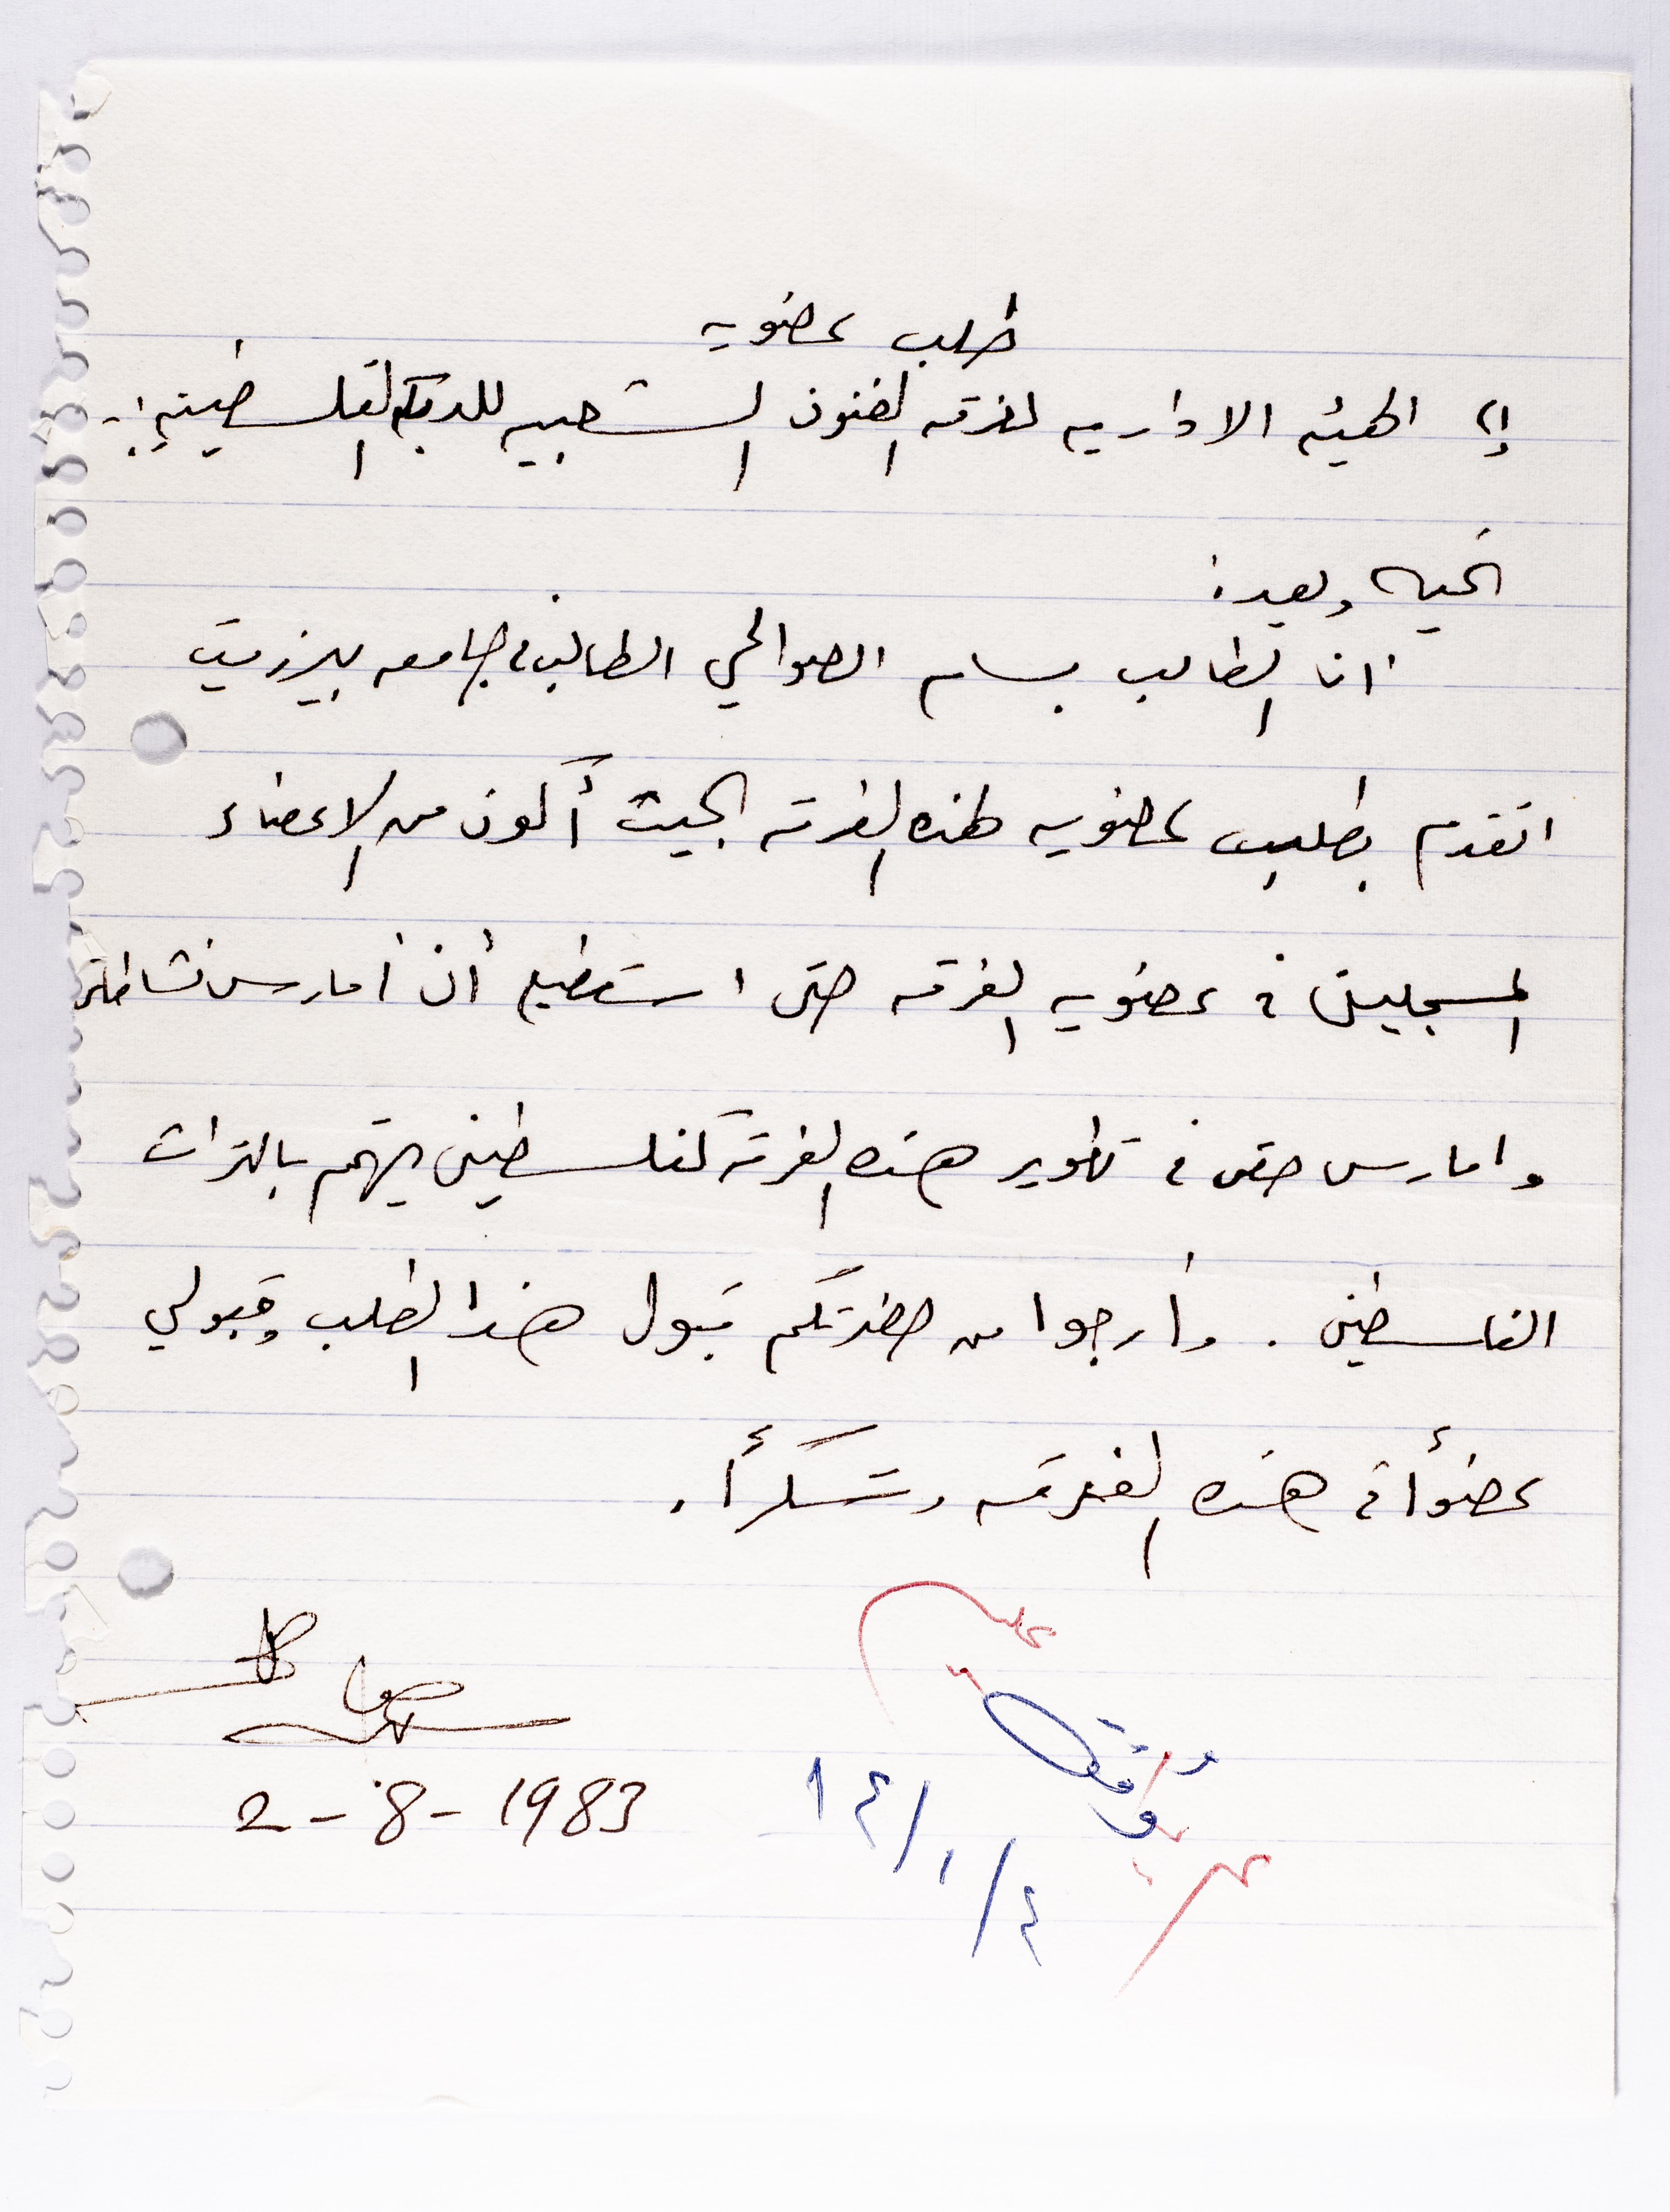 طلب عضويه
إلى الهيئه الاداريه لفرقه الفنون الشعبيه للدبكه الفلسطينيه :-
تحيه وبعد :
انا الطالب بسام الصوالحي الطالب في جامعه بيرزيت
اتقدم بطلب عضويه لهذه الفرقه بحيث أكون من الاعضاء
المسجلين في عضويه الفرقه حتى استطيع أن أمارس نشاطاتي
وامارس حقي في تطوير هذه الفرقه كفلسطيني يهتم بالتراث
الفلسطيني . وأرجوا من حضرتكم قبول هذا الطلب وقبولي
عضوأ في هذه الفرقه وشكرأ .
2-8-1983